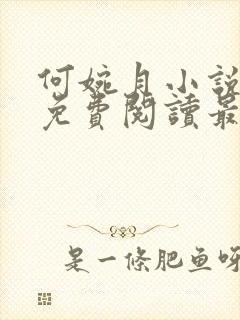 何婉月小說
免費閱讀最
是一條肥鱼呀